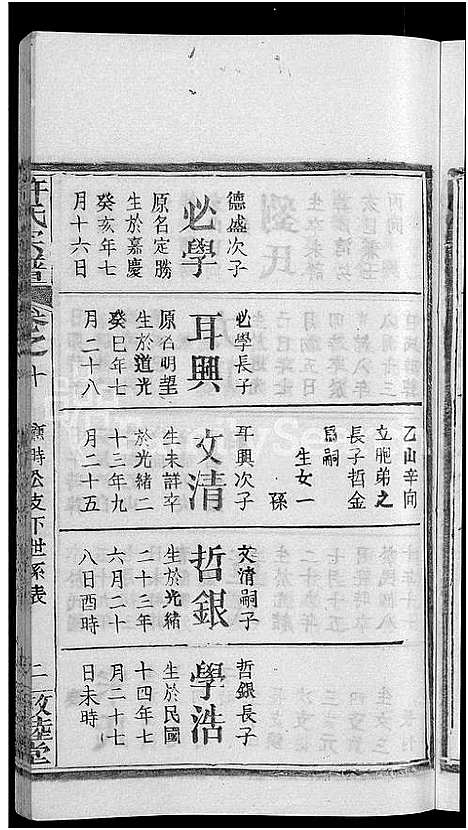 乙山辛向
立胞弟之
長子哲金
爲嗣
生女一
孫
德盛次子
必學
原名定勝
生於嘉慶
癸亥年七
月十六日
必學長子
耳興
原名明望
生於道光
癸巳年七
月二十八
耳興次子
文清
生未詳卒
於光緒二
十三年九
月二十五
文清嗣子
哲銀
生於光緒
二十三年
六月二十
八日酉時
哲銀長子
學浩
生於民國
十四年七
月二十七
日未時
許氏宗譜
卷之十
時公支下世系表
二
敦睦堂